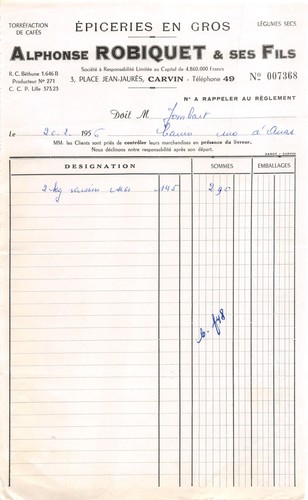 TORRÉFACTION
DE CAFÉS
ÉPICERIES EN GROS
LÉGUMES SECS
ALPHONSE ROBIQUET & SES FILS
Société à Responsabilité Limitée au Capital de 4.860.000 Francs
R. C. Béthune 1.646 B
Producteur N° 271
C. C. P. Lille 573.23
3, PLACE JEAN-JAURÈS, CARVIN - Téléphone 49
N° 007368
N° A RAPPELER AU RÈGLEMENT
Doit M. Jombart
le 20.2. 1956 rue d'Arras
MM. les Clients sont priés de contrôler leurs marchandises en présence du livreur.
Nous déclinons notre responsabilité après son départ.
DESIGNATION SOMMES EMBALLAGES
2 kg 145 290